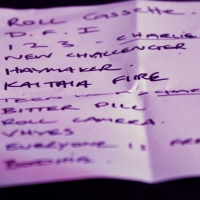 ROLL CASSETTE.
D.F.I
1 2 3 - CHARLIE
NEW CHALLENGER
HAYMAKER.
KAITAIA FIRE
BITTER PILL
ROLL CAMERA.
VHYES
EVERYONE IS